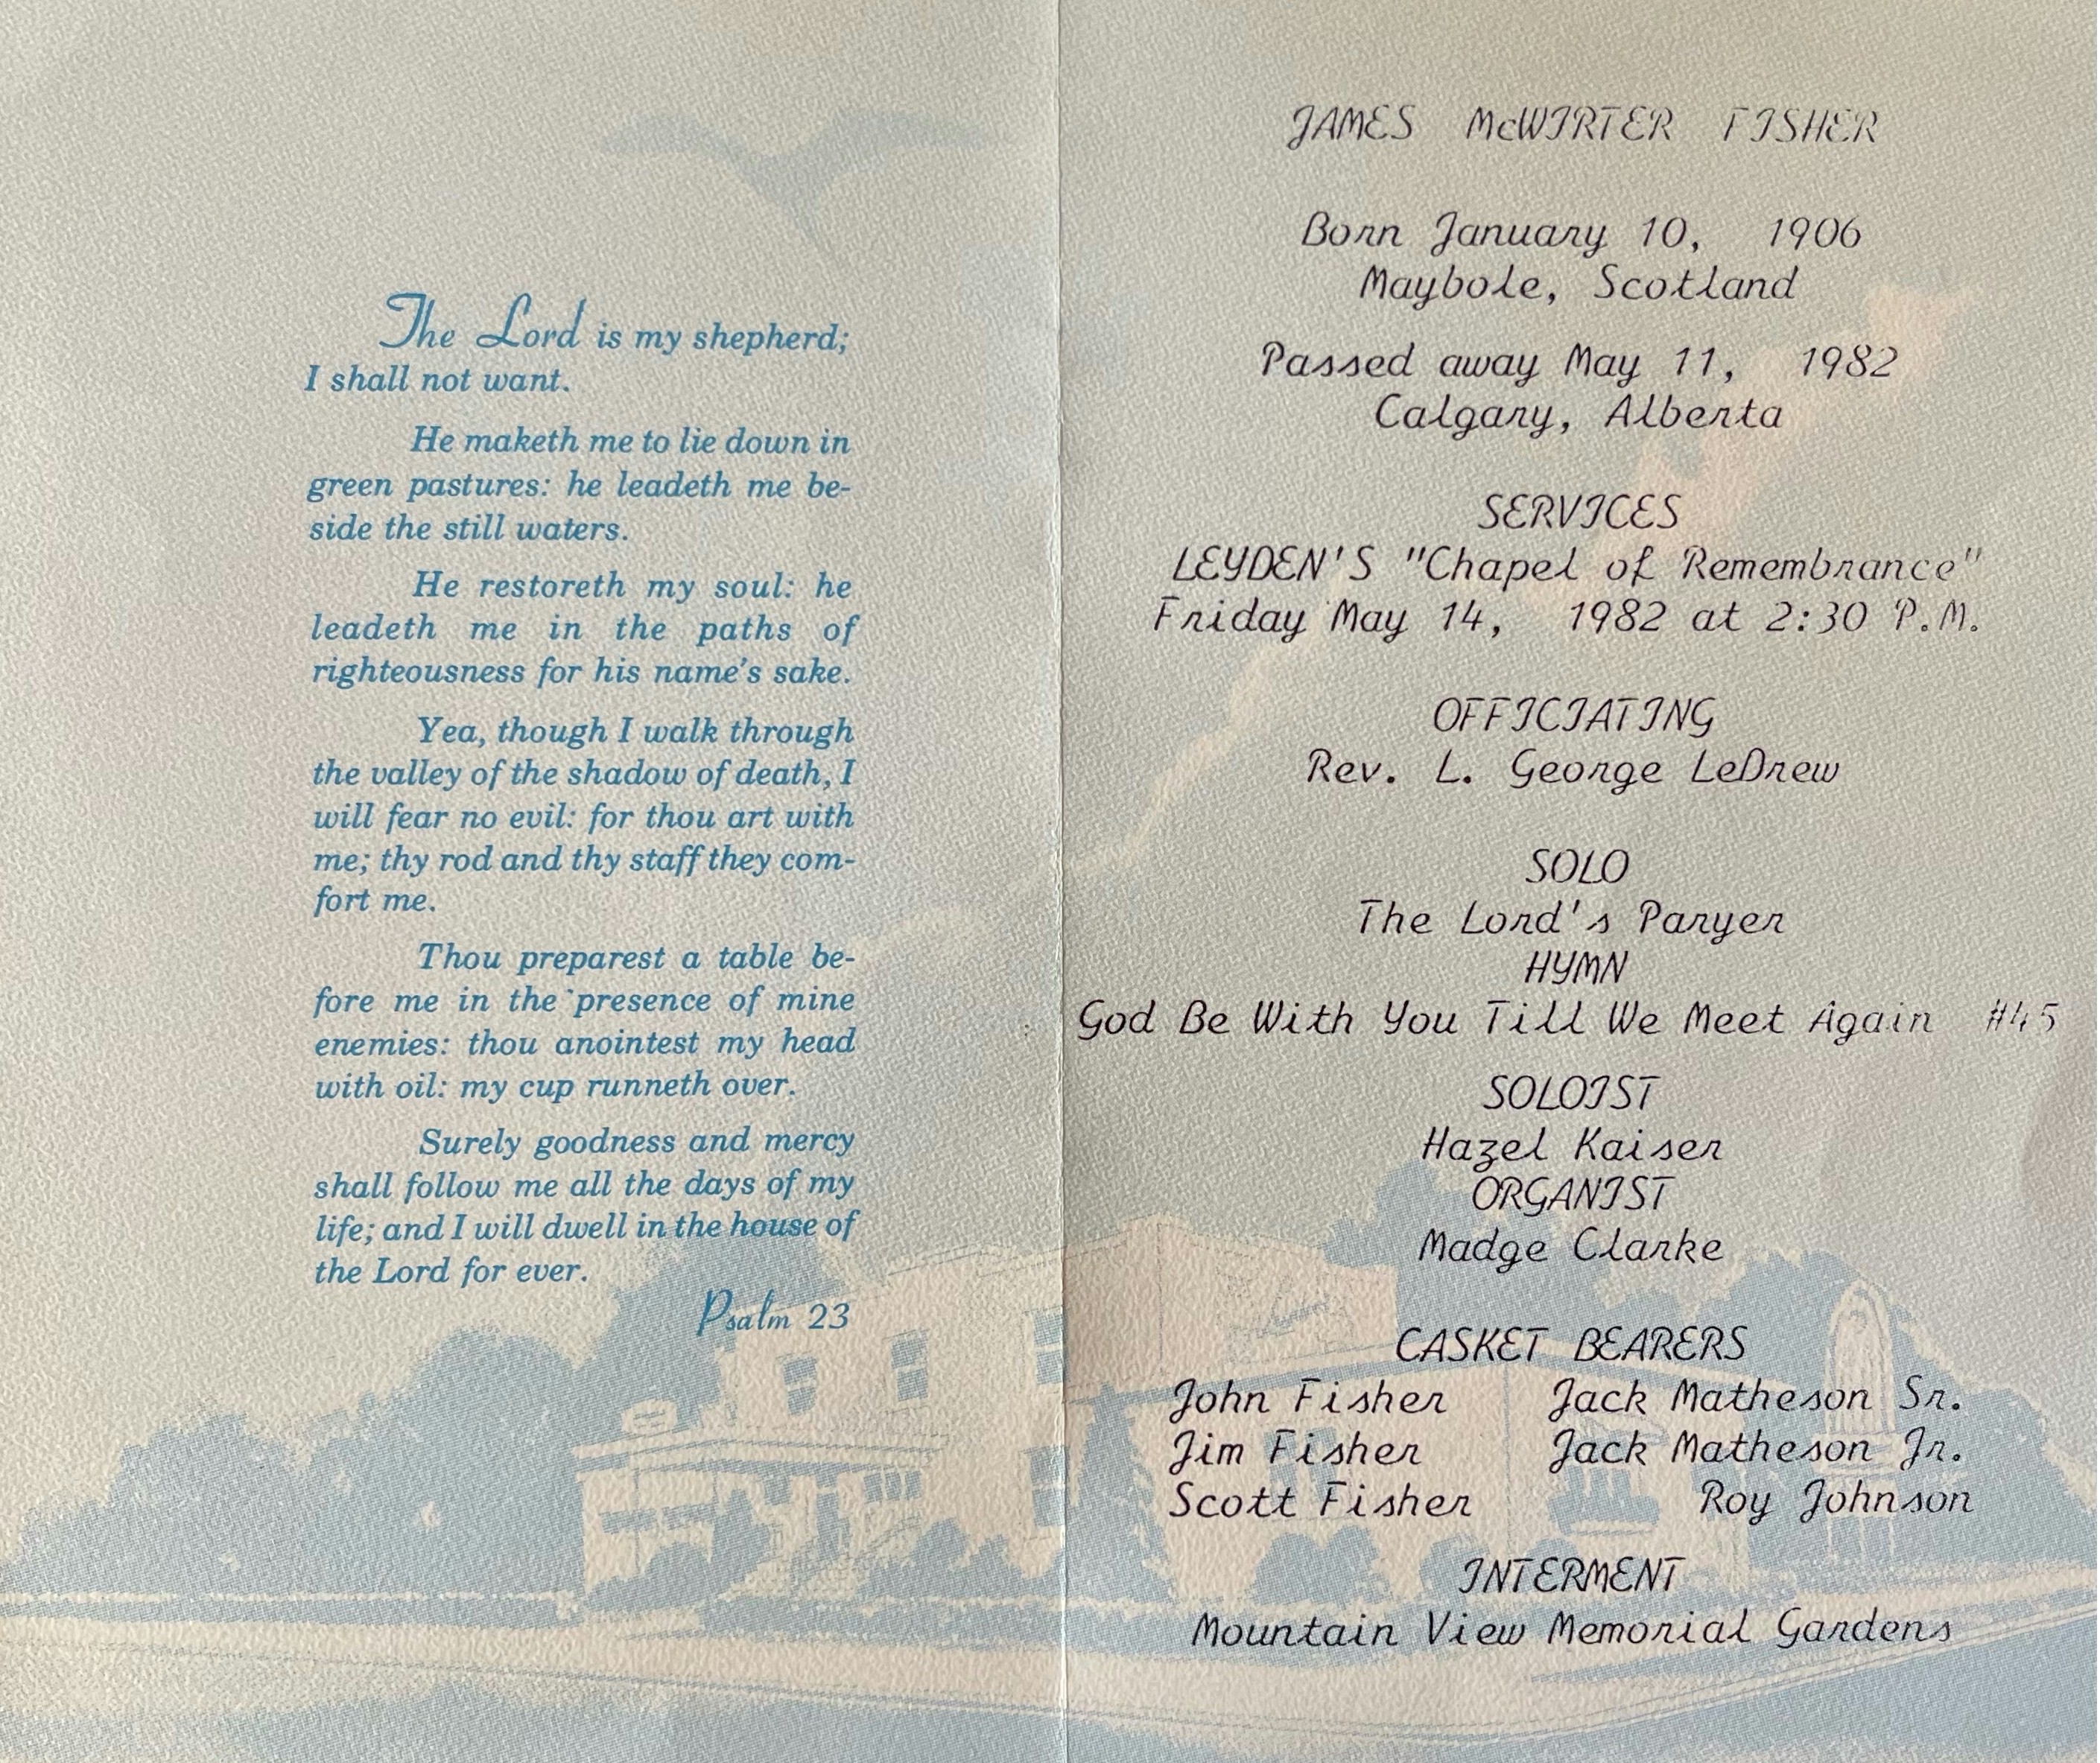 The Lord is my shepherd;
I shall not want.
He maketh me to lie down in
green pastures: he leadeth me be-
side the still waters.
He restoreth my soul: he
leadeth me in the paths of
righteousness for his name's sake.
Yea, though I walk through
the valley of the shadow of death, I
will fear no evil: for thou art with
me; thy rod and thy staff they com-
fort me.
Thou preparest a table be-
fore me in the presence of mine
enemies: thou anointest my head
with oil: my cup runneth over.
Surely goodness and mercy
shall follow me all the days of my
life; and I will dwell in the house of
the Lord for ever.
Psalm 23
JAMES McWIRTER FISHER
Born January 10, 1906
Maybole, Scotland
Passed away May 11, 1982
Calgary, Alberta
SERVICES
LEYDEN'S "Chapel of Remembrance"
Friday May 14, 1982 at 2:30 P.M.
OFFICIATING
Rev. L. George LeDrew
SOLO
The Lord's Paryer
HYMN
God Be With You Till We Meet Again #45
SOLOIST
Hazel Kaiser
ORGANIST
Madge Clarke
CASKET BEARERS
John Fisher Jack Matheson Sr.
Jim Fisher Jack Matheson Jr.
Scott Fisher Roy Johnson
INTERMENT
Mountain View Memorial Gardens